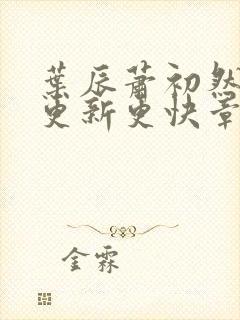 葉辰蕭初然
更新更快章
金霖